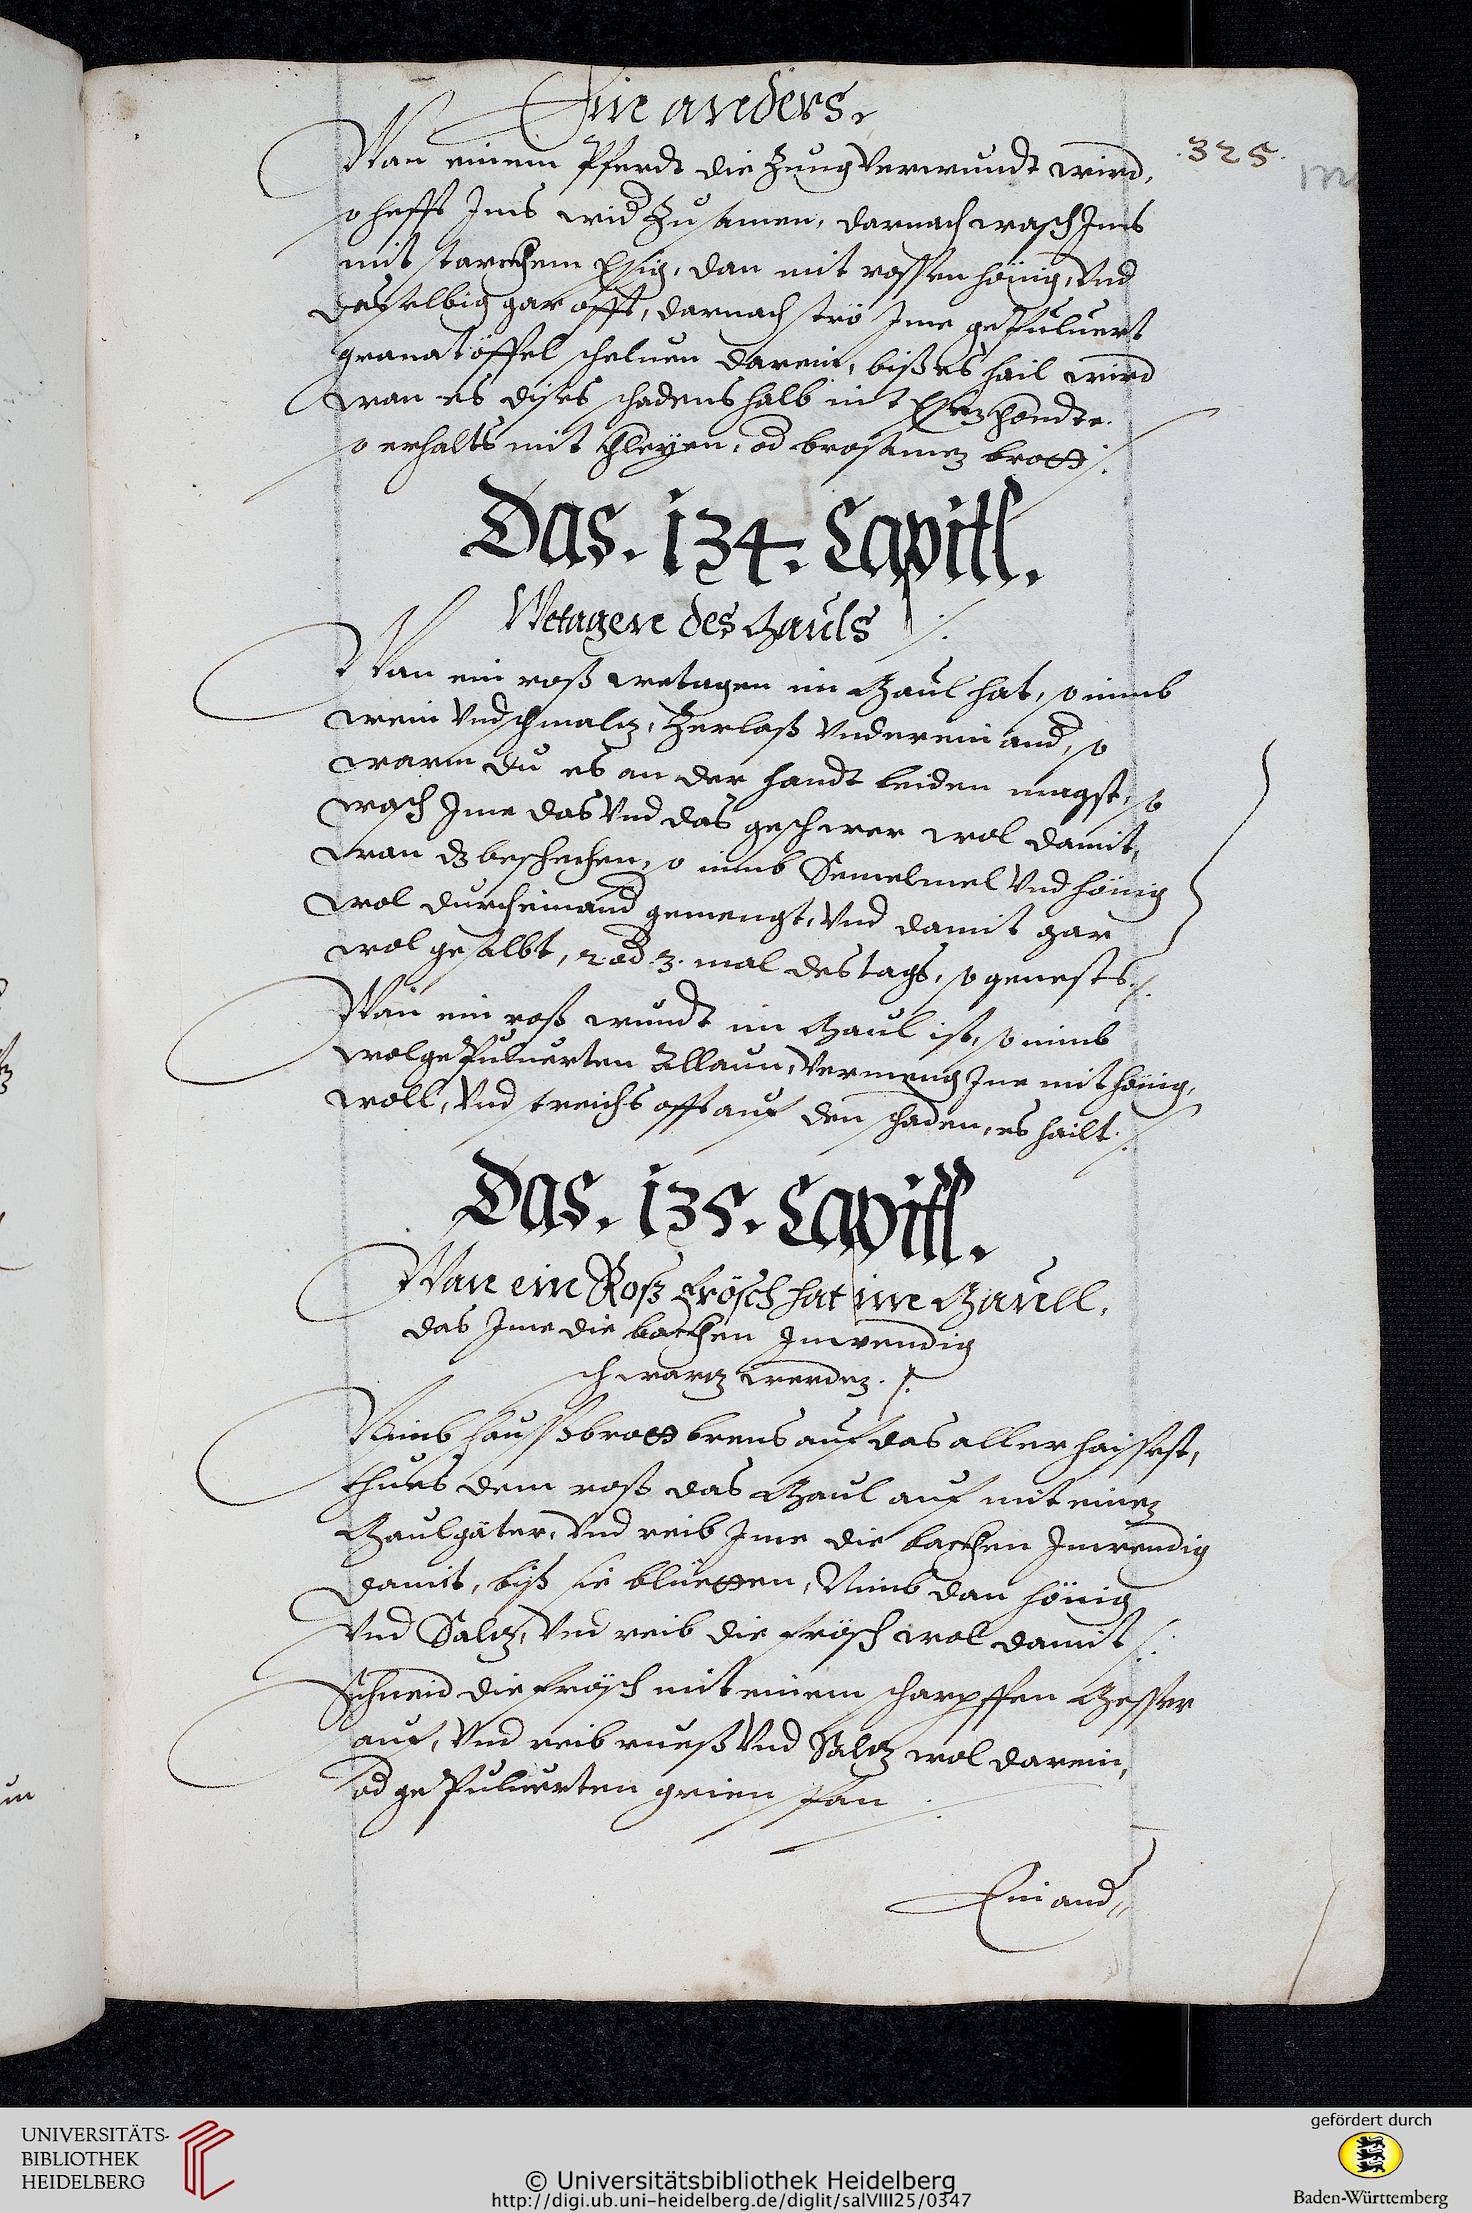 Ein anders.
.325.
Wan einem Pferdt die Zung Verwundt wird,
so hefft Ims wid Zusamen, darnach wasch Ims
mit starckhem Essig, dan mit rossen hönig, Vnd
dasselbig gar offt, darnach strö Ime gePuluert
granatöpffel scheluen darein, biß es hail wird
wan es dises schadens halb nit Essen khondte.
so erhalts mit Khleyen, od brosamen brott ./.
Das . 134 . Capitl.
Wetagen des Mauls ./.
Wan ein roß wetagen im Maul hat, so nimb
wein Vnd schmaltz, Zerlaß Vndereinand, so
warm du es an der handt leiden magst, so
wasch Ime das Vnd das geschwer wol damit,
wan dz beschechen, so nimb Semelmel Vnd hönig
wol durcheinand gemengt, Vnd damit gar
wol gesalbt, 2. od .3. mal des tags, so genests ./.
Wan ein roß wundt im Maul ist, so nimb
wolgePuluerten Allaun, Vermeng Ine mit hönig,
woll, Vnd streichs offt auf den schaden, es hailt ./.
Das . 135 . Capitl.
Wan ein Roß frösch hat im Maull,
das Ime die backhen Inwendig
schwartz werden ./.
Nimb haußbrott brens auf das aller haissest,
thues dem roß das Maul auf mit einem
Maulgäter, Vnd reib Ime die backhen Inwendig
damit, biß sie blüetten, Nimb dan hönig
Vnd Saltz, Vnd reib die frösch wol damit ./.
Schneid die frösch mit einem scharpffen Messer
auf, Vnd reib rueß Vnd Saltz wol darein,
od gePuluerten grien span ./.
Ein and
UNIVERSITÄTS-
BIBLIOTHEK
HEIDELBERG
© Universitätsbibliothek Heidelberg
http://digi.ub.uni-heidelberg.de/diglit/salVIII25/0347
gefördert durch
Baden-Württemberg